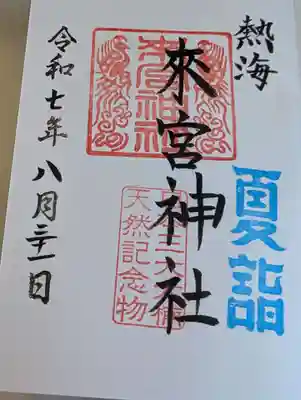 熱海
夏詣
來宮神社
天然記念物
令和七年八月三十一日